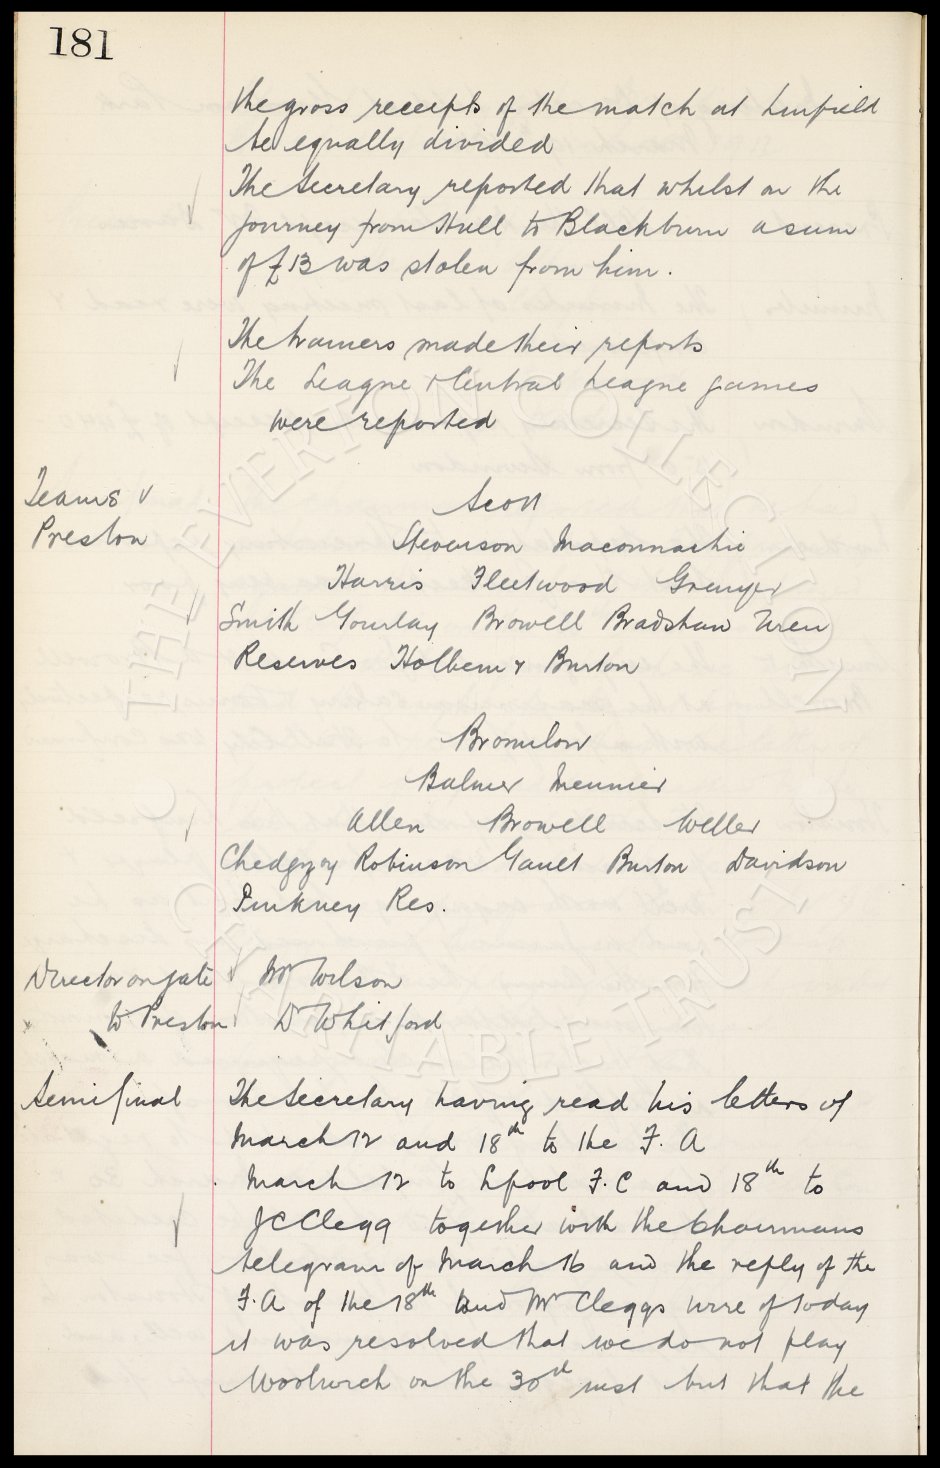 181
the gross receipts of the match at Linfield
be equally divided
The Secretary reported that whilst on the
journey from Hull to Blackburn a sum
of £13 was stolen from him.
The trainers made their reports
The League & Central League games
were reported
Teams v
Preston
Scott
Stevenson Maconnachie
Harris Fleetwood Grenyer
Smith Gourlay Browell Bradshaw Uren
Reserves Holbem & Burton
Bromilow
Balmer Meunier
Allen Browell Weller
Chedgzoy Robinson Gault Burton Davidson
Pinkney Res.
Director on gate Mr Wilson
to Preston Dr Whitford
Semifinal The Secretary having read his letters of
March 12 and 18th to the F.A
March 12 to Lpool F.C and 18th to
JC Clegg together with the Chairmans
telegram of March 16 and the reply of the
F.A of the 18th and Mr Cleggs wire of today
it was resolved that we do not play
Woolwich on the 30th inst but that the
THE EVERTON COLLECTION
CHARITABLE TRUST